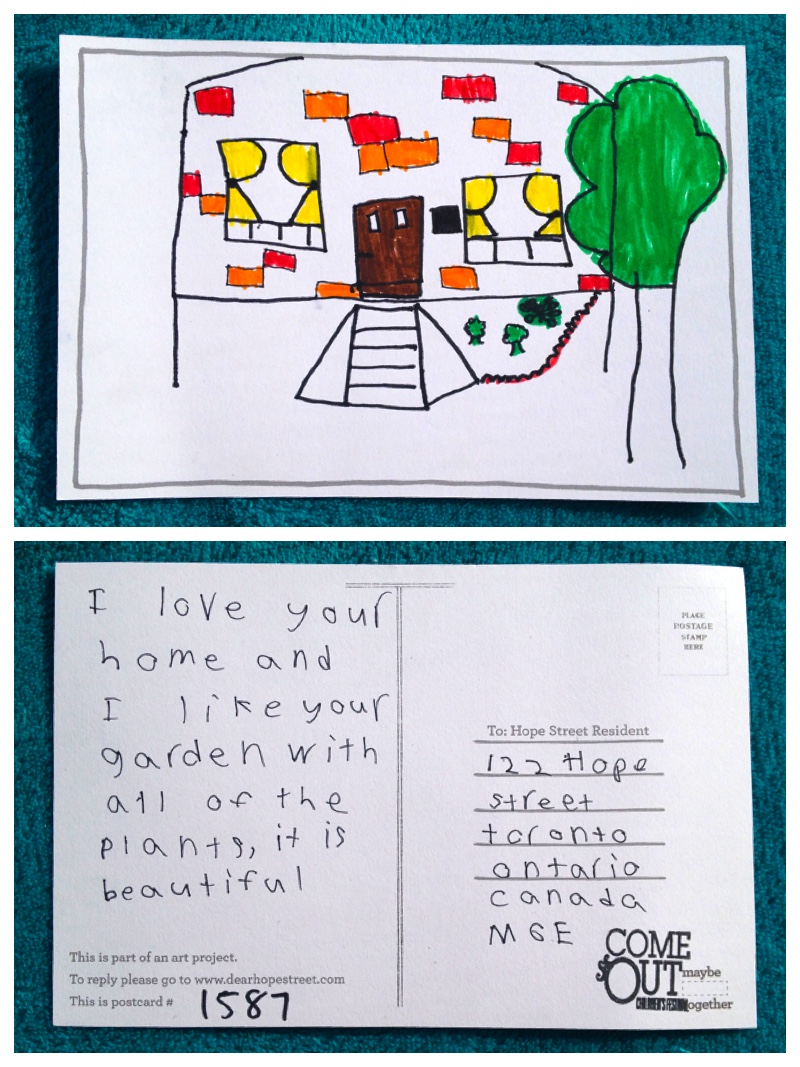 I love your
home and
I like your
garden with
all of the
plants, it is
beautiful
This is part of an art project.
To reply please go to www.dearhopestreet.com
This is postcard # 1587
PLACE
POSTAGE
STAMP
HERE
To: Hope Street Resident
122 Hope
street
toronto
ontario
canada
M6E
COME
OUT
CHILDREN'S FESTIVAL
maybe
together